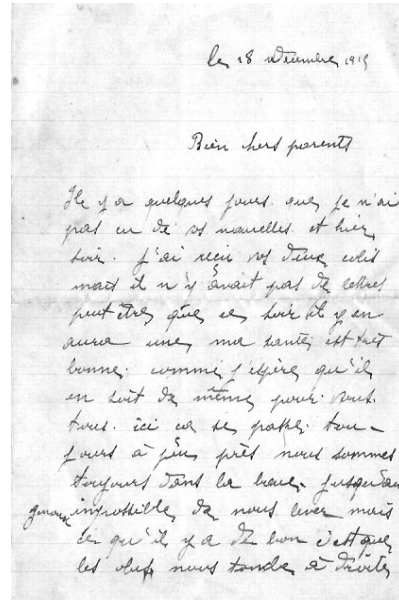 le 18 décembre 1915
Bien chers parents
Il y a quelques jours que je n'ai
pas eu de vos nouvelles et hier
soir. j'ai recu vos deux colis
mais il n'y avait pas de lettres
peut être que ce soir il y en
aura une, ma santé est très
bonne. comme j'espère qu'il
en soit de même pour vous
tous. ici ca se passe tou-
jours à peu près nous sommes
toujours dans la boue jusqu'au
genoux impossible de nous laver mais
ce qu'il y a de bon c'est que
les obus nous tombe à droite